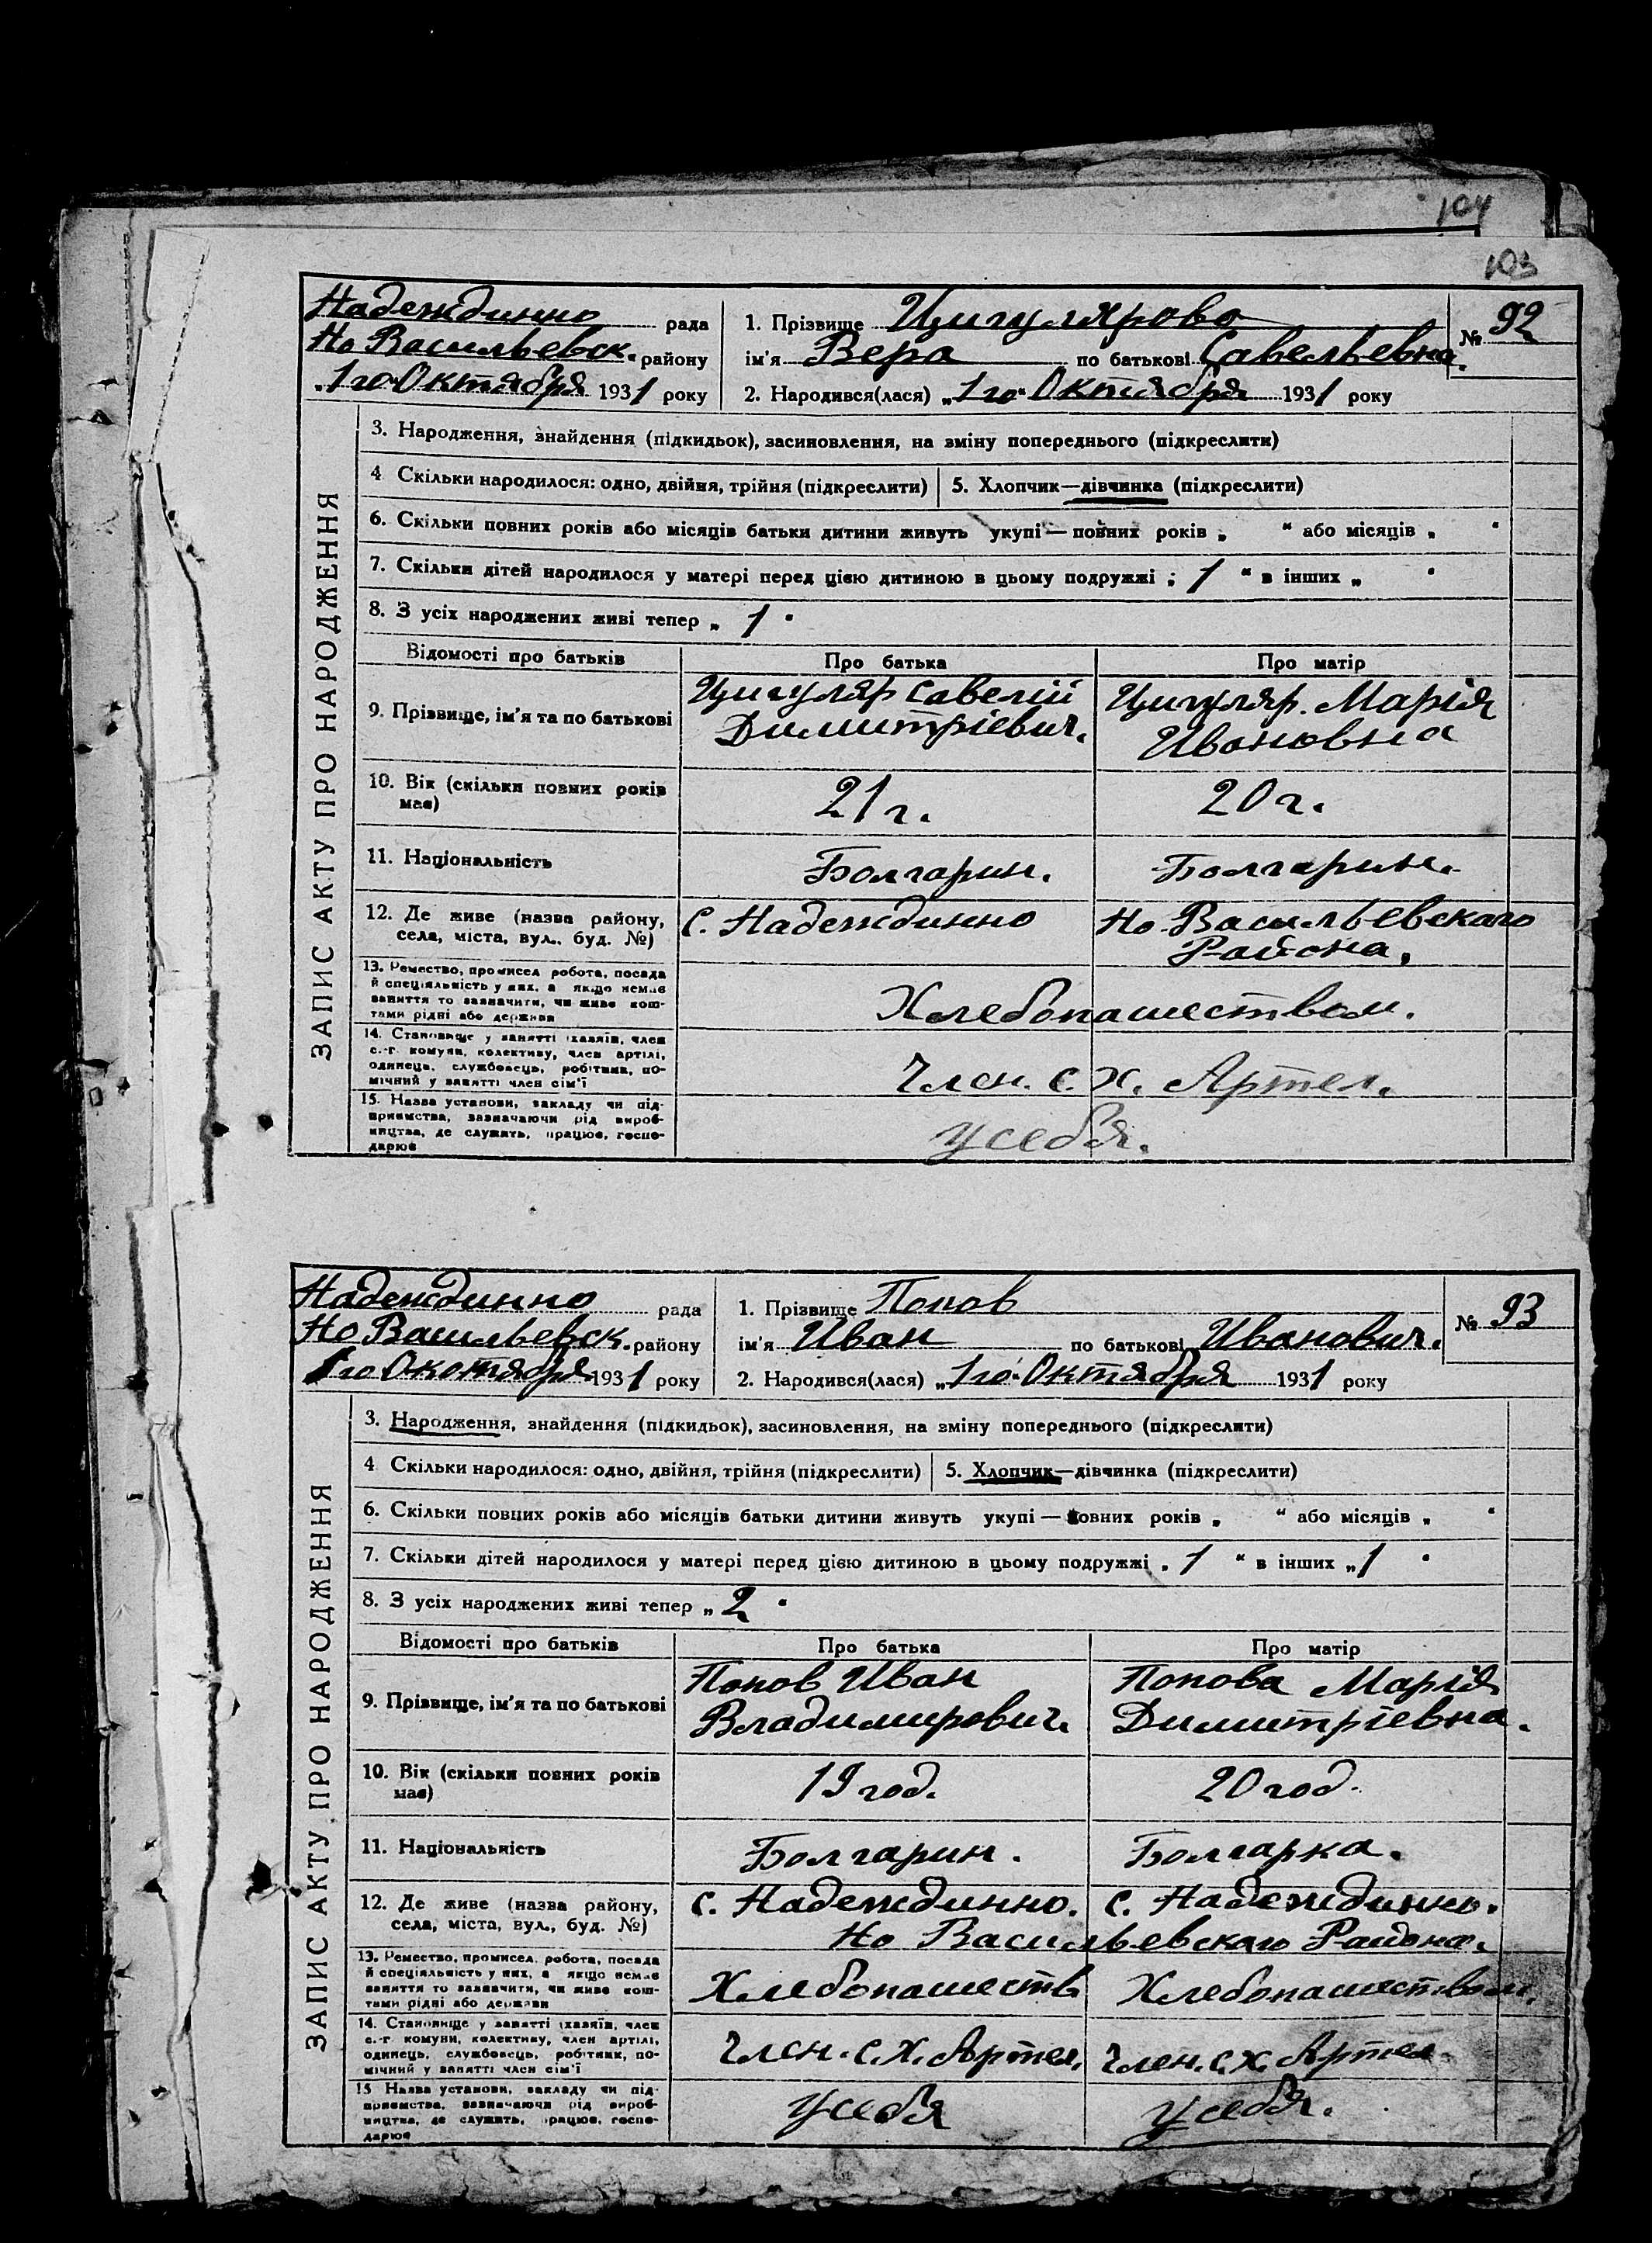 104
103
Надеждинно рада
Но Васильевск. району
„1го" Октября 1931 року
1. Прізвище Цигулярова
ім'я Вера по батькові Савельевна.
2. Народився(лася) „1го" Октября 1931 року
№ 92
ЗАПИС АКТУ ПРО НАРОДЖЕННЯ
3. Народження, знайдення (підкидьок), засиновлення, на зміну попереднього (підкреслити)
4 Скільки народилося: одно, двійня, трійня (підкреслити) 5. Хлопчик—дівчинка (підкреслити)
6. Скільки повних років або місяців батьки дитини живуть укупі — повних років „ “ або місяців „ “
7. Скільки дітей народилося у матері перед цією дитиною в цьому подружжі „ 1 “ в інших „ “
8. З усіх народжених живі тепер „ 1 “
Відомості про батьків Про батька Про матір
9. Прізвище, ім'я та по батькові
Цигуляр Савелій
Димитріевич.
Цигуляр. Марія
Ивановна
10. Вік (скільки повних років
має)
21 г.
20 г.
11. Національність Болгарин. Болгарин.
12. Де живе (назва району,
села, міста, вул., буд. №)
С. Надеждинно
Но-Васильевскаго
Района.
13. Ремество, промисел робота, посада
й спеціяльність у них, а якщо немає
заняття то зазначити, чи живе кош-
тами рідні або держави
Хлебопашеством.
14. Становище у занятті хазяїн, член
с.-г. комуни, колективу, член артілі,
одинець, службовець, робітник, по-
мічний у занятті член сім'ї
Член. с. х. Артел.
15. Назва установи, закладу чи під-
приємства, зазначаючи рід вироб-
ництва, де служить, працює, госпо-
дарює
у себя.
Надеждинно рада
Но Васильевск. району
1го Окотября 1931 року
1. Прізвище Попов
ім'я Иван по батькові Иванович.
2. Народився(лася) „1го" Октября 1931 року
№ 93
ЗАПИС АКТУ ПРО НАРОДЖЕННЯ
3. Народження, знайдення (підкидьок), засиновлення, на зміну попереднього (підкреслити)
4 Скільки народилося: одно, двійня, трійня (підкреслити) 5. Хлопчик—дівчинка (підкреслити)
6. Скільки повних років або місяців батьки дитини живуть укупі — повних років „ “ або місяців „ “
7. Скільки дітей народилося у матері перед цією дитиною в цьому подружжі „ 1 “ в інших „ 1 “
8. З усіх народжених живі тепер „ 2 “
Відомості про батьків Про батька Про матір
9. Прізвище, ім'я та по батькові
Попов Иван
Владимирович.
Попова Марія
Димитріевна.
10. Вік (скільки повних років
має)
19 год.
20 год.
11. Національність Болгарин. Болгарка.
12. Де живе (назва району,
села, міста, вул., буд. №)
с. Надеждинно. с. Надеждинно.
Но Васильевскаго Района.
13. Ремество, промисел, робота, посада
й спеціяльність у них, а якщо немає
заняття то зазначити, чи живе кош-
тами рідні або держави
Хлебопашеств Хлебопашеством.
14. Становище у занятті хазяїн, член
с.-г. комуни, колективу, член артілі,
одинець, службовець, робітник, по-
мічний у занятті член сім'ї
Член. с. х. Артел. Член. с. х. Артел.
15 Назва установи, закладу чи під-
приємства, зазначаючи рід вироб-
ництва, де служить, працює, госпо-
дарює
у себя у себя.